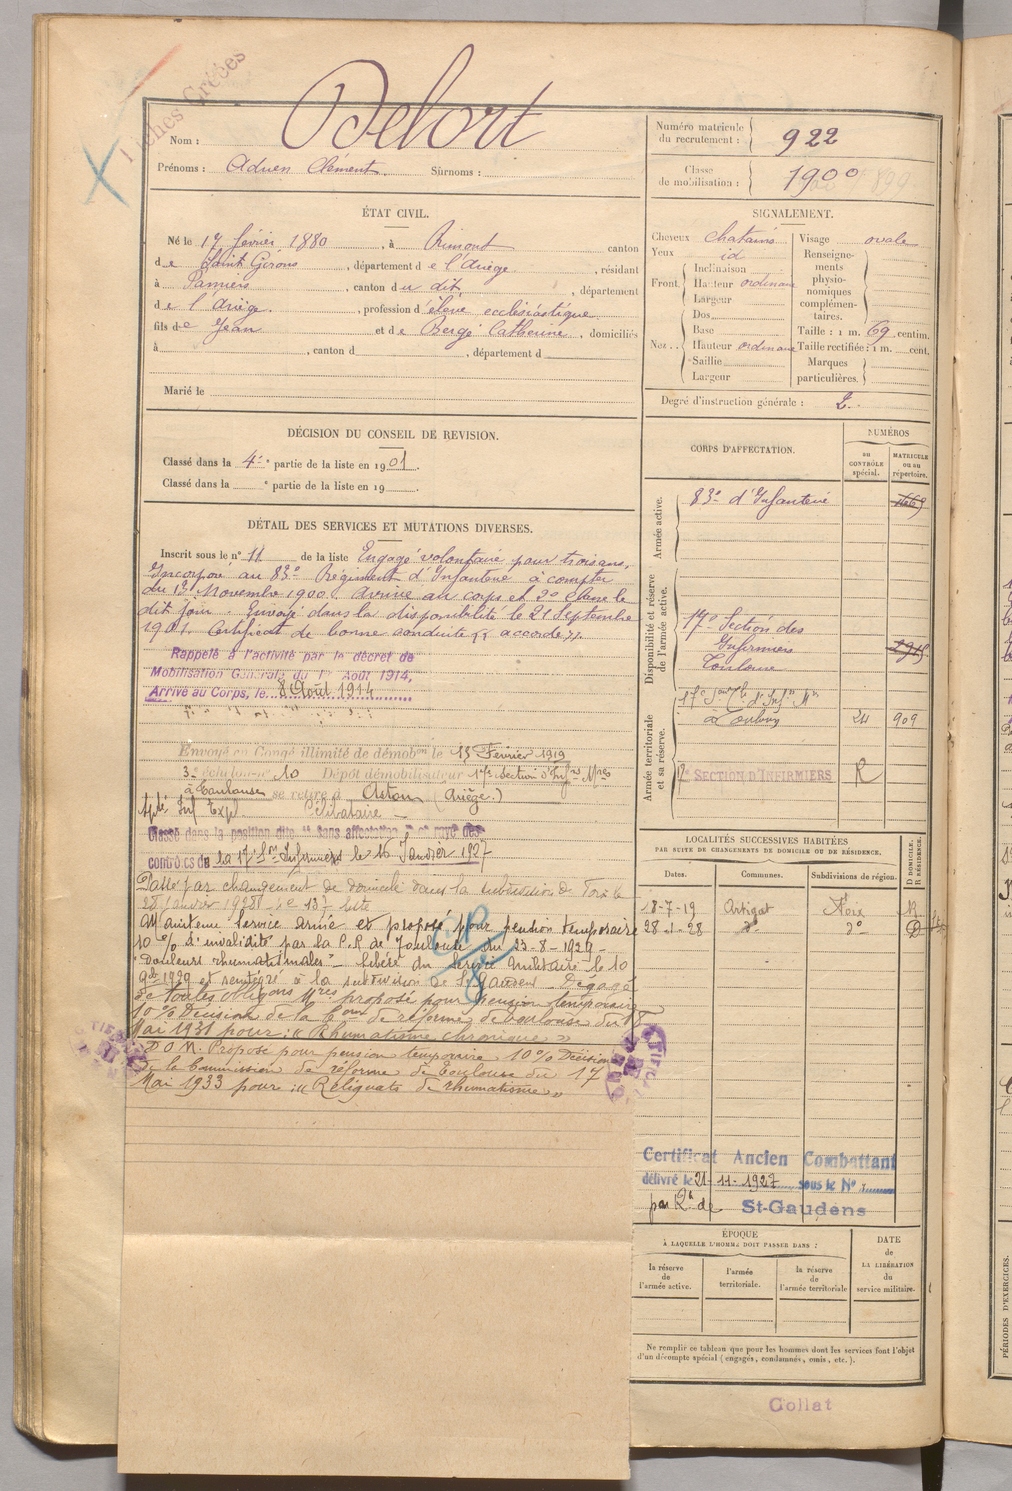 Fiches Créées
Nom : Delort
Prénoms : Adrien Clément. Surnoms :
Numéro matricule du recrutement : 922
Classe de mobilisation : 1900
ÉTAT CIVIL.
Né le 17 février 1880, à Rimont canton
de Saint Girons, département de l'Ariège, résidant
à Pamiers, canton du dit, département
de l'Ariège, profession d'élève ecclésiastique
fils de Jean et de Bergé Catherine, domiciliés
à , canton d , département d
Marié le
SIGNALEMENT.
Cheveux chatains
Yeux id
Front. Inclinaison
Hauteur ordinaire
Largeur
Nez. Dos
Base
Hauteur ordinaire
Saillie
Largeur
Visage ovale
Renseignements physionomiques complémentaires.
Taille : 1 m. 69 centim.
Taille rectifiée : 1 m. cent.
Marques particulières.
Degré d'instruction générale :
DÉCISION DU CONSEIL DE REVISION.
Classé dans la 4e partie de la liste en 1901.
Classé dans la e partie de la liste en 19 .
DÉTAIL DES SERVICES ET MUTATIONS DIVERSES.
Inscrit sous le n° 11 de la liste Engagé volontaire pour trois ans,
Incorporé au 83e Régiment d'Infanterie à compter
du Novembre 1900. Arrivé au corps et 2e classe le
dit jour. Envoyé dans la disponibilité le 21 Septembre
1901. Certificat de bonne conduite accordé.
Rappelé à l'activité par le décret de
Mobilisation Générale du 1er Août 1914,
Arrivé au Corps, le 8 Août 1914
Envoyé en Congé illimité de démobon le 13 Février 1919
3e échelon n° 10 Dépôt démobilisateur 17e Section d'Infrs Mres
à Toulouse se retire à Aston (Ariège.)
Célibataire
Classé dans la position dite "sans affectation" et rayé des
contrôles de la 17e Son Infirmiers le 16 Janvier 1927
Passé par changement de domicile dans la subdivision de
28 Janvier 1928
Maintenu Service armé et proposé pour pension temporaire
10 % d'invalidité par la C.R. de Toulouse du 23-8-1929
"Douleurs rhumatismales" libéré du Service Militaire le 10
8bre 1929 et réintégré à la subdivision de St Gaudens. Dégagé
de toutes obligons Mres proposé pour pension temporaire
10% Décision de la Coon de réforme de Toulouse du
Mai 1931 pour : « Rhumatisme chronique »
D.O.M. Proposé pour pension temporaire 10% Décision
de la Commission de réforme de Toulouse du 17
Mai 1933 pour : « Reliquats de rhumatisme »
CORPS D'AFFECTATION.
NUMÉROS
au CONTRÔLE spécial.
MATRICULE ou au répertoire.
Armée active.
83e d'Infanterie
Disponibilité et réserve de l'armée active.
17e Section des
Infirmiers
Toulouse
Armée territoriale et sa réserve.
à Toulouse 24 909
17e SECTION D'INFIRMIERS R
LOCALITÉS SUCCESSIVES HABITÉES
PAR SUITE DE CHANGEMENTS DE DOMICILE OU DE RÉSIDENCE.
Dates. Communes. Subdivisions de région. D DOMICILE. R RÉSIDENCE.
18-7-19 Artigat Foix R
28-1-28 do do D
Certificat Ancien Combattant
délivré le 21-11-1927 sous le N°
par de St-Gaudens
ÉPOQUE
À LAQUELLE L'HOMME DOIT PASSER DANS :
la réserve de l'armée active.
l'armée territoriale.
la réserve de l'armée territoriale
DATE de LA LIBÉRATION du service militaire.
Ne remplir ce tableau que pour les hommes dont les services font l'objet
d'un décompte spécial (engagés, condamnés, omis, etc.).
Collat
PÉRIODES D'EXERCICES.